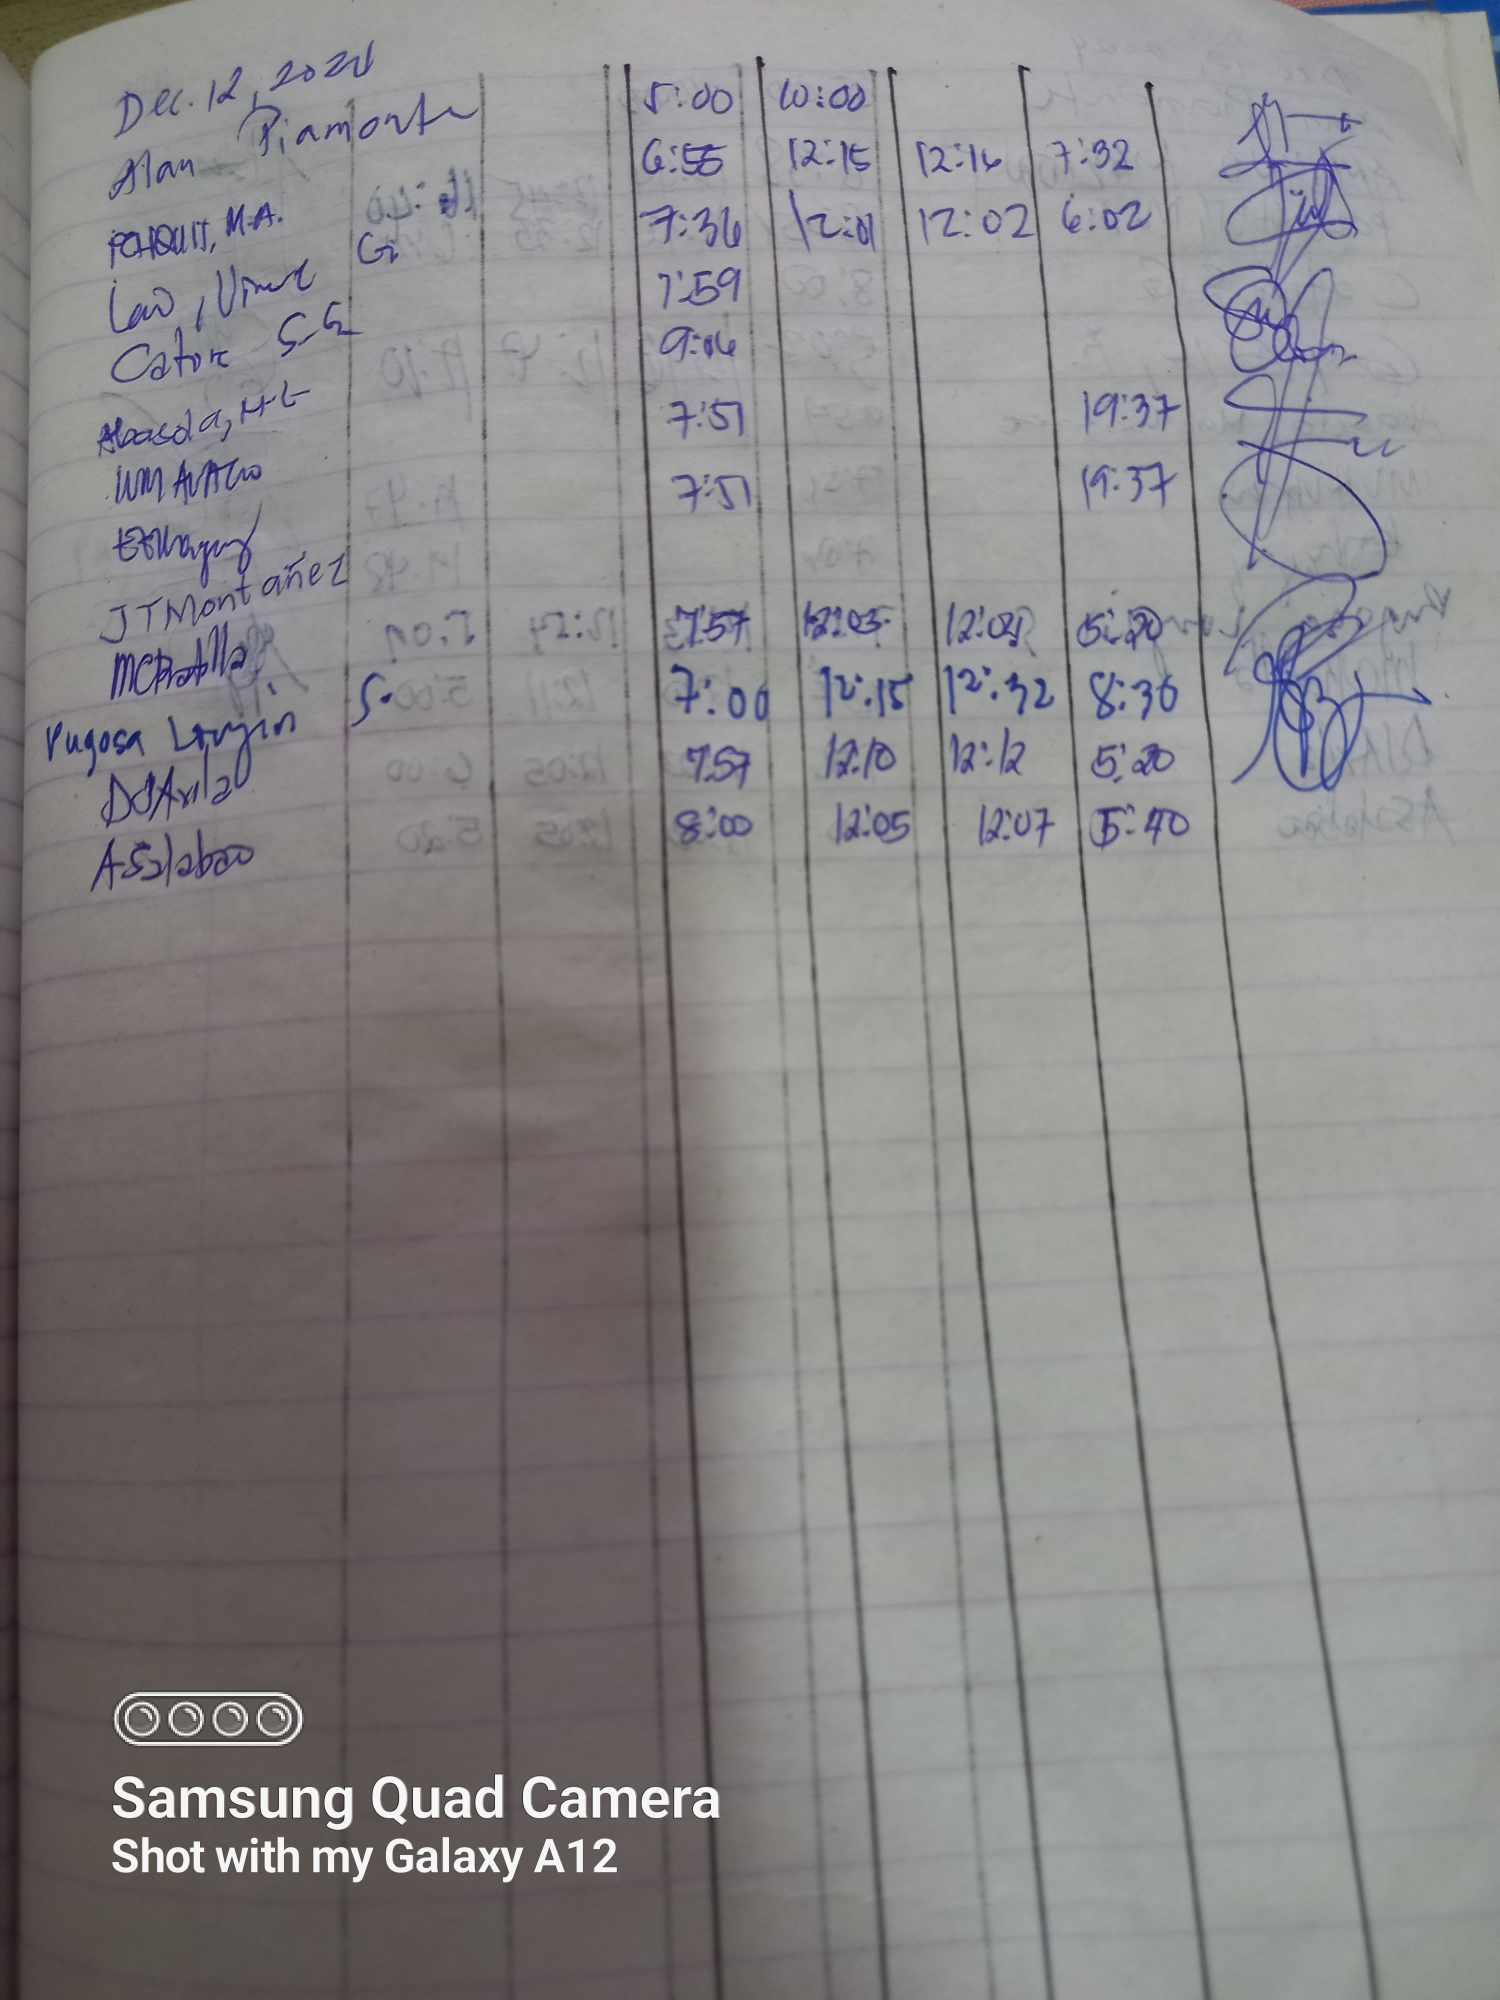 Dec. 12, 2024
Alan Piamonte 5:00 10:00
M.A. 6:55 12:15 12:16 7:32
Lao, Vince G. 7:36 12:01 12:02 6:02
Catore S-G 7:59
Abasola, 9:06
WM 7:51 19:37
7:51 19:37
JTMontañez
7:57 12:03 12:04 5:20
Pugosa Longin S. 7:00 12:15 12:32 8:30
DJAvila 7:57 12:10 12:12 5:20
ASalabao 8:00 12:05 12:07 5:40
Samsung Quad Camera
Shot with my Galaxy A12